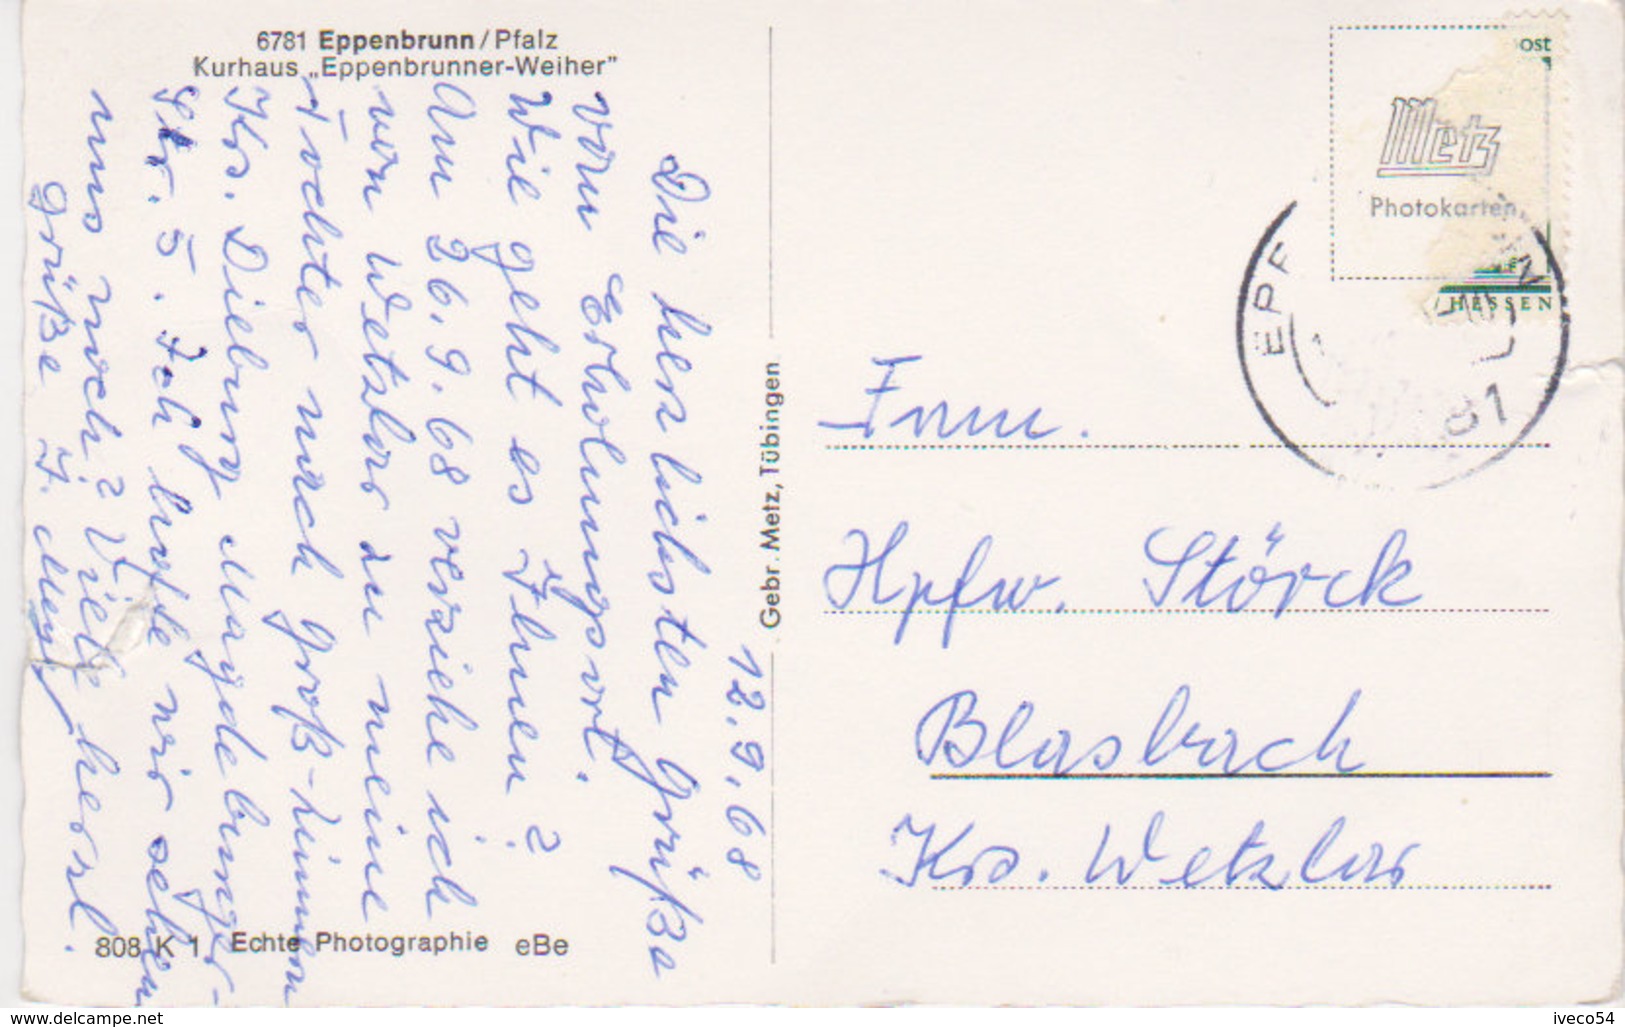 6781 Eppenbrunn / Pfalz
Kurhaus „Eppenbrunner-Weiher"
12.9.68
Die herzlichsten Grüße
vom Erholungsort.
Wie geht es Ihnen?
Am 26.9.68 verziehe ich
von Wetzlar zu meine
Tochter nach Groß-Zimmern
Krs. Dieburg Magdeburger-
Str. 5. Ich hoffe wir sehen
uns noch? Viele herzl.
Grüße I.
808 K 1. Echte Photographie eBe
Gebr. Metz, Tübingen
ost
Metz
Photokarten
HESSEN
EPP
81
Frau.
Hpfw. Störck
Blasbach
Krs. Wetzlar
www.delcampe.net
iveco54